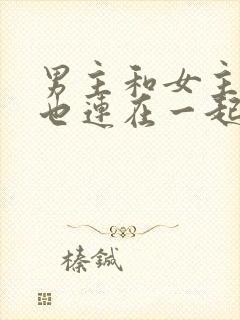 男主和女主
也连在一起
榛鍼